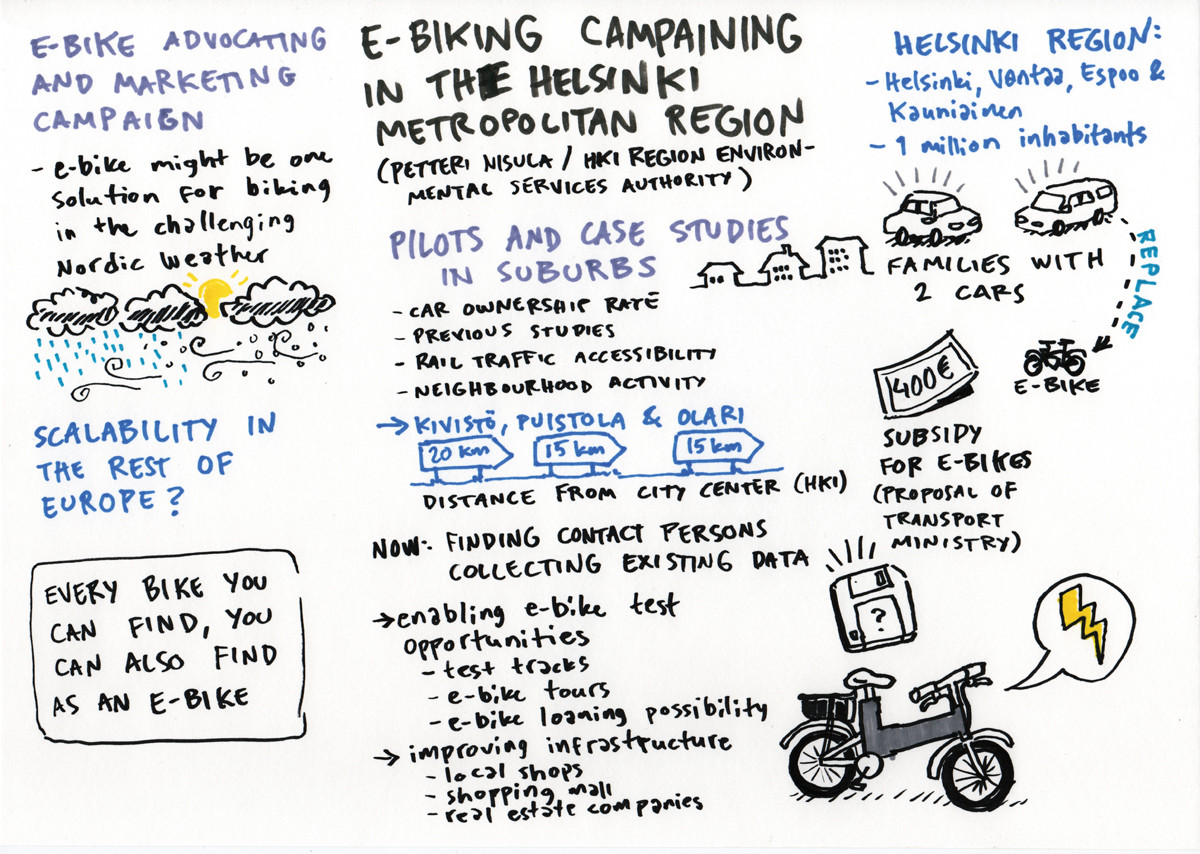 E-BIKE ADVOCATING
AND MARKETING
CAMPAIGN
- e-bike might be one
solution for biking
in the challenging
Nordic Weather
SCALABILITY IN
THE REST OF
EUROPE?
EVERY BIKE YOU
CAN FIND, YOU
CAN ALSO FIND
AS AN E-BIKE
E-BIKING CAMPAINING
IN THE HELSINKI
METROPOLITAN REGION
(PETTERI NISULA / HKI REGION ENVIRON-
MENTAL SERVICES AUTHORITY)
PILOTS AND CASE STUDIES
IN SUBURBS
- CAR OWNERSHIP RATE
- PREVIOUS STUDIES
- RAIL TRAFFIC ACCESSIBILITY
- NEIGHBOURHOOD ACTIVITY
→ KIVISTÖ, PUISTOLA & OLARI
20 km 15 km 15 km
DISTANCE FROM CITY CENTER (HKI)
NOW: FINDING CONTACT PERSONS
COLLECTING EXISTING DATA
→ enabling e-bike test
opportunities
- test tracks
- e-bike tours
- e-bike loaning possibility
→ improving infrastructure
- local shops
- shopping mall
- real estate companies
HELSINKI REGION:
- Helsinki, Vantaa, Espoo &
Kauniainen
- 1 million inhabitants
FAMILIES WITH
2 CARS
REPLACE
E-BIKE
400€
SUBSIDY
FOR E-BIKES
(PROPOSAL OF
TRANSPORT
MINISTRY)
?